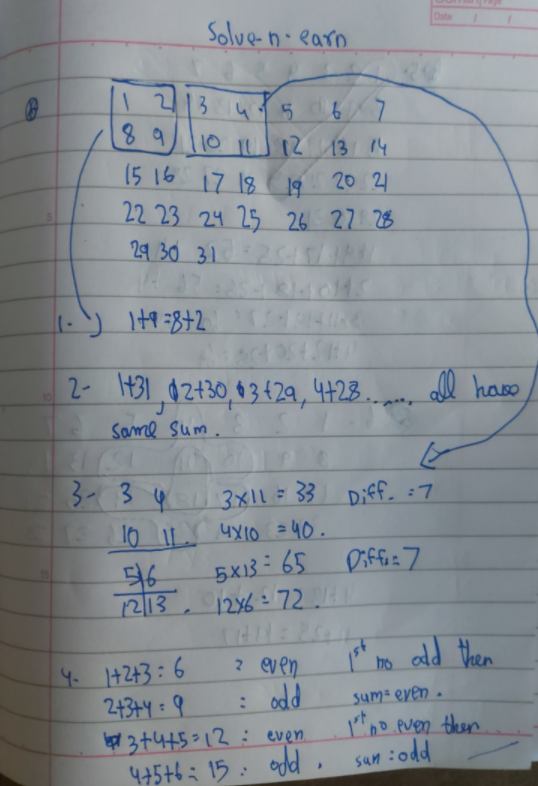 Page
Date / /
Solve-n-earn
1 2 3 4 5 6 7
8 9 10 11 12 13 14
15 16 17 18 19 20 21
22 23 24 25 26 27 28
29 30 31
1-) 1+9=8+2
2- 1+31, 2+30, 3+29, 4+28...... all have
same sum.
3- 3 4 3x11 = 33 Diff. = 7
10 11 4x10 = 40.
5 6 5x13 = 65 Diff. = 7
12 13. 12x6 = 72.
4. 1+2+3 = 6 : even 1st no odd then
2+3+4 = 9 : odd sum=even.
3+4+5=12 : even 1st no even then
4+5+6 = 15 : odd. sum : odd